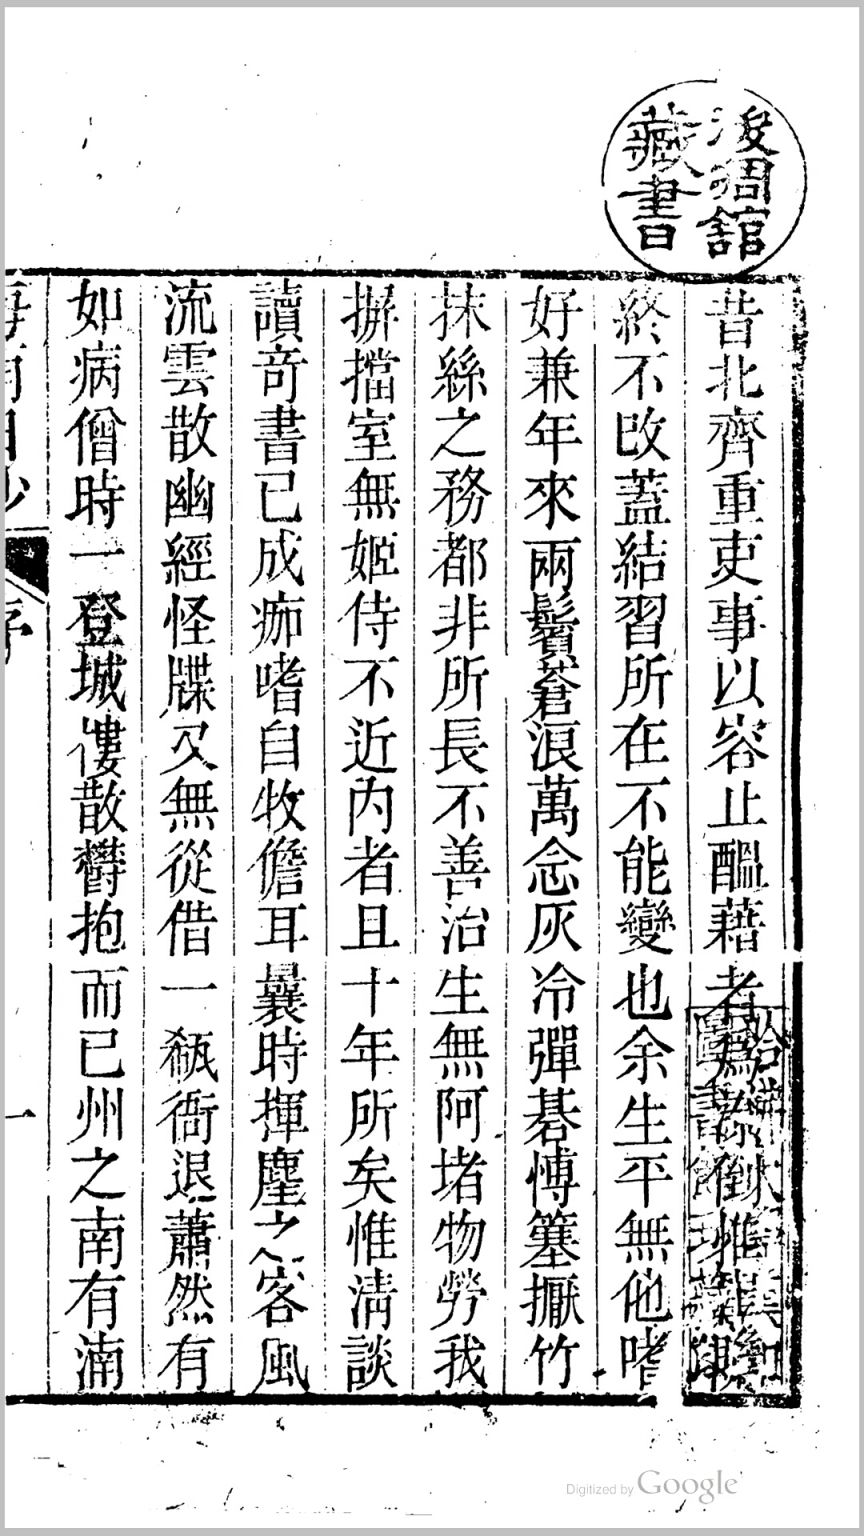 昔北齊重吏事以容止醞藉者為潦倒惟崔瞻
終不改蓋結習所在不能變也余生平無他嗜
好兼年來兩鬢蒼浪萬念灰冷彈碁愽簺擫竹
抹絲之務都非所長不善治生無阿堵物勞我
摒擋室無姬侍不近內者且十年所矣惟淸談
讀竒書已成痂嗜自牧儋耳曩時揮麈之客風
流雲散幽經怪牒又無從借一瓻衙退蕭然有
如病僧時一登城僂散鬱抱而已州之南有湳
序
一
藏書
館
Digitized by Google